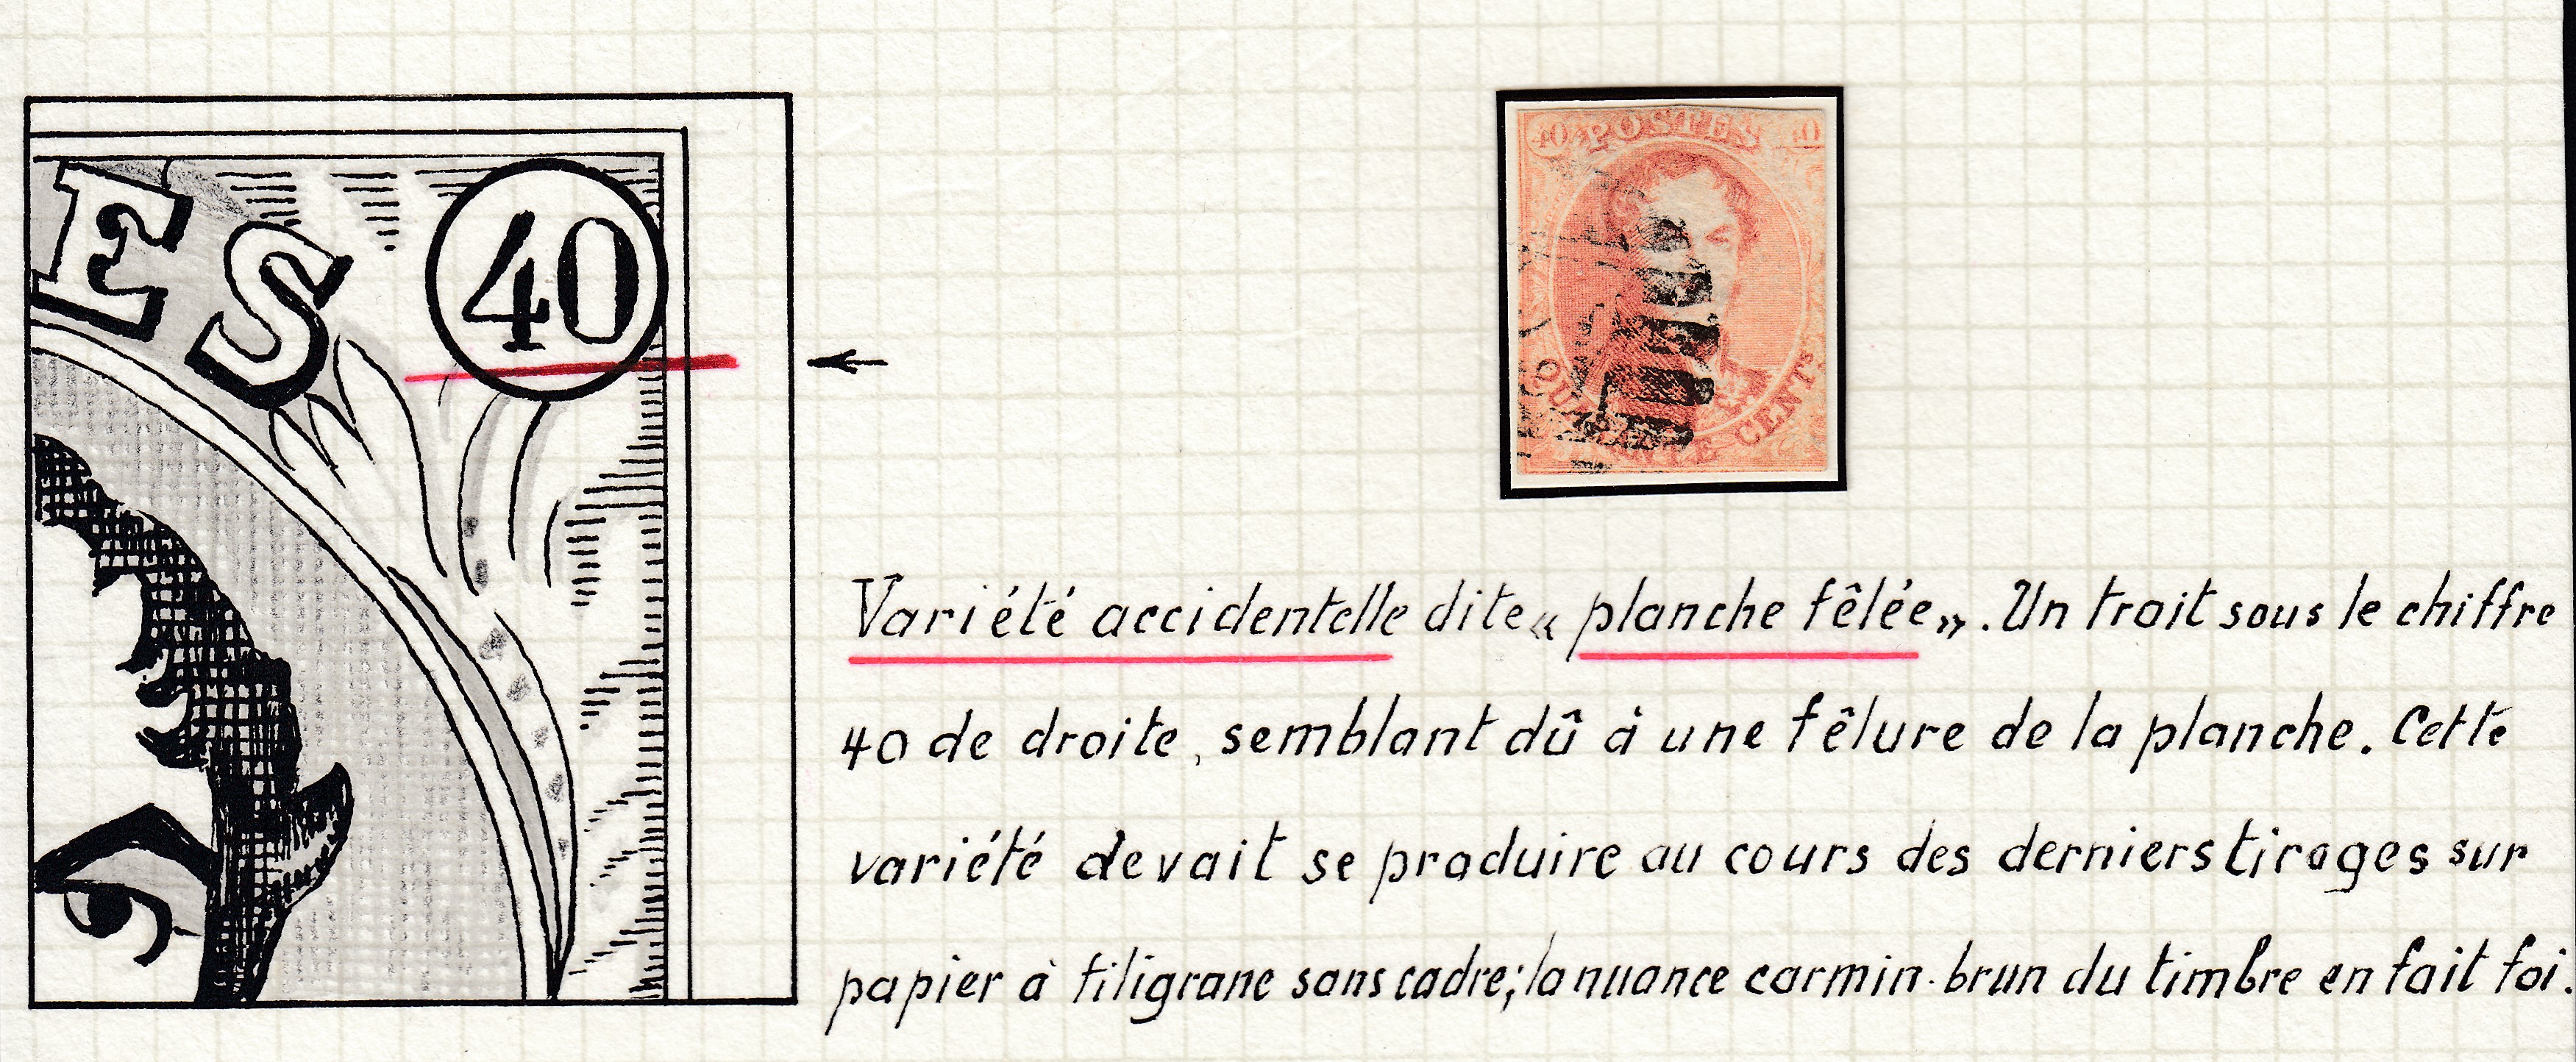 ES
40
40 POSTES 40
QUARANTE CENTS
Variété accidentelle dite « planche fêlée ». Un trait sous le chiffre
40 de droite, semblant dû à une fêlure de la planche. Cette
variété devait se produire au cours des derniers tirages sur
papier à filigrane sans cadre; la nuance carmin-brun du timbre en fait foi.